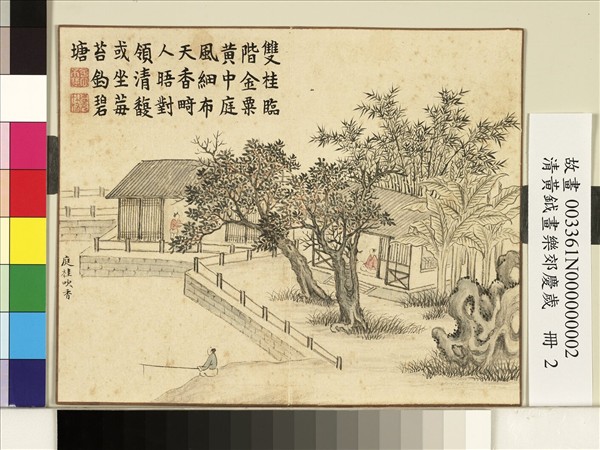 雙桂臨
階金粟
黃中庭
風細布
天香時
人晤對
領清馥
或坐莓
苔釣碧
塘
庭桂吹香
故畫 003361N000000002
清黃鉞畫樂郊慶歲 冊 2